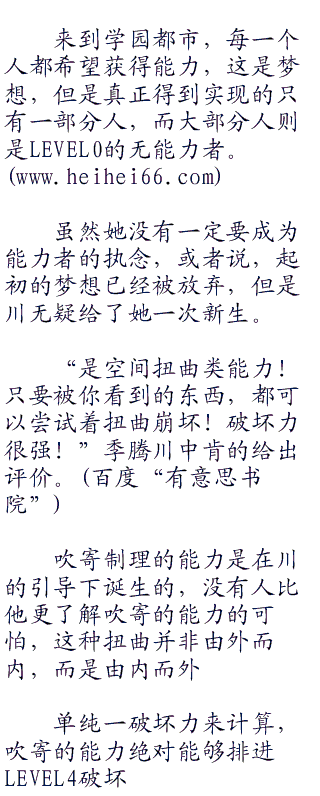 来到学园都市，每一个
人都希望获得能力，这是梦
想，但是真正得到实现的只
有一部分人，而大部分人则
是LEVEL0的无能力者。
(www.heihei66.com)
虽然她没有一定要成为
能力者的执念，或者说，起
初的梦想已经被放弃，但是
川无疑给了她一次新生。
“是空间扭曲类能力！
只要被你看到的东西，都可
以尝试着扭曲崩坏！破坏力
很强！”季腾川中肯的给出
评价。(百度“有意思书
院”)
吹寄制理的能力是在川
的引导下诞生的，没有人比
他更了解吹寄的能力的可
怕，这种扭曲并非由外而
内，而是由内而外
单纯一破坏力来计算，
吹寄的能力绝对能够排进
LEVEL4破坏